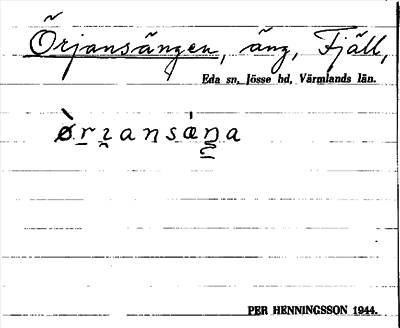 Örjansängen, äng, Fjäll,
Eda sn, Jösse hd, Värmlands län.
PER HENNINGSSON 1944.